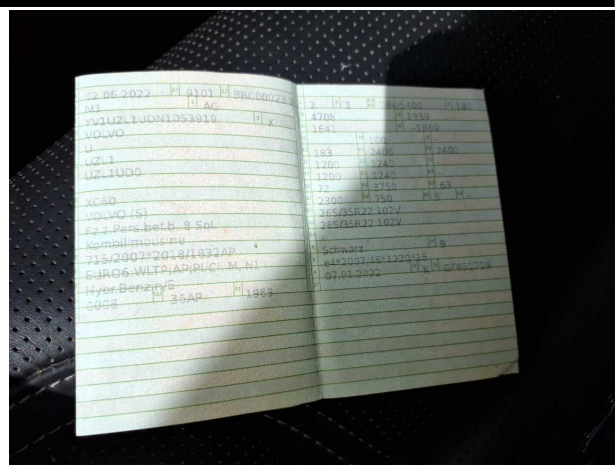 02.06.2022 9101 BRC00023
M1 AC
YV1UZL1UDN1053919 X
VOLVO
U
UZL1
UZL1UD0
XC60
VOLVO (S)
Fz.z.Pers.bef.b. 8 Spl.
Kombilimousine
715/2007*2018/1832AP
EURO6 WLTP;AP;PI/CI; M, N1 I
Hybr.Benzin/E
0008 36AP 1969
2 1 184/5400 180
4708 1939
1641 --1869
183 2400 2400
1200 1240
1200 1240 -
72 3750 69
2300 750 5 -
265/35R22 102V
265/35R22 102V
Schwarz 9
e4*2007/46*1220*15
07.01.2022 K